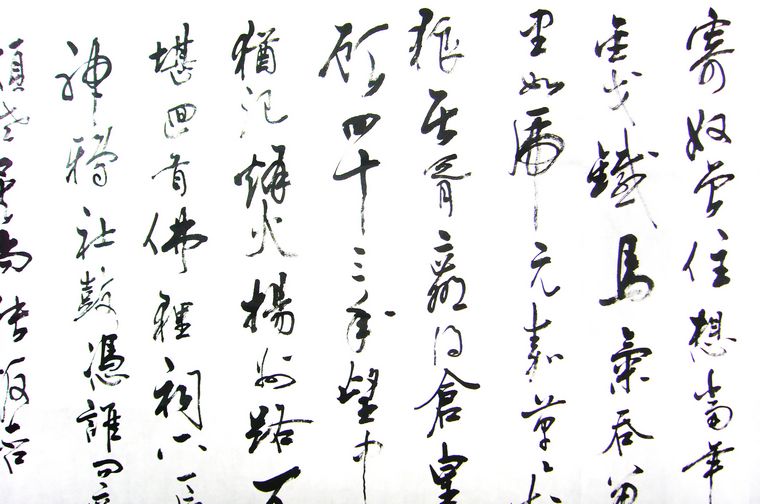 寄奴曾住想當年
金戈鐵馬氣吞萬
里如虎元嘉草々
狼居胥贏得倉皇
顧四十三年望中
猶記烽火揚州路
堪回首佛狸祠下一
神鴉社鼓憑誰問
頗老矣尚能飯否